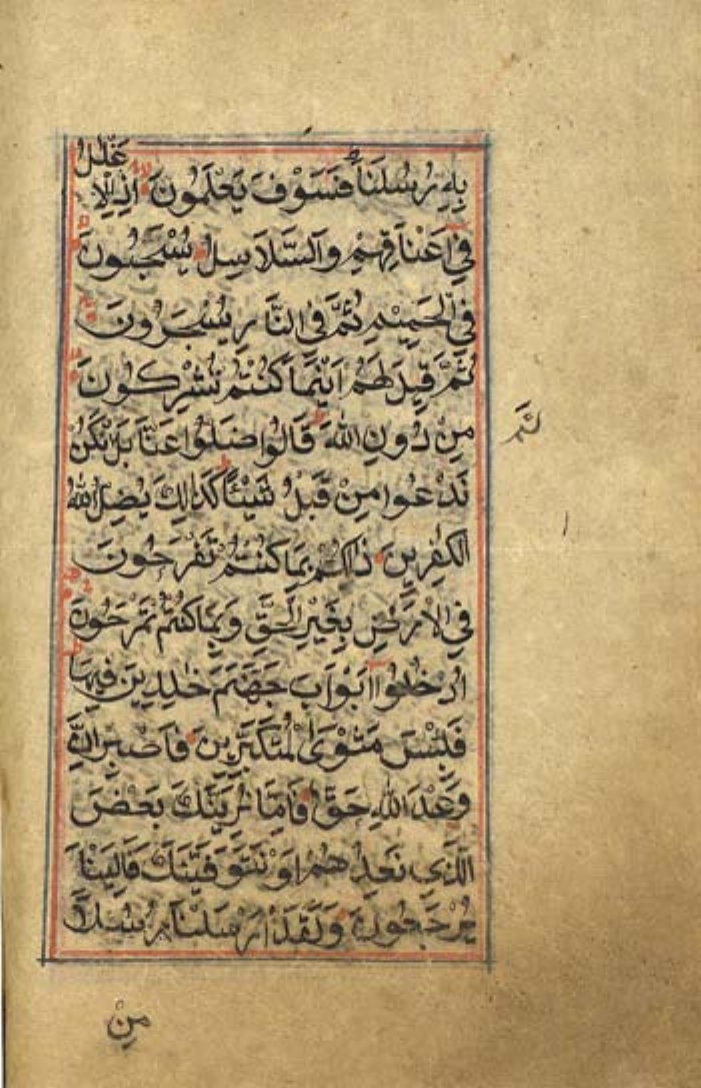 بِهٖ رُسُلَنَا فَسَوْفَ يَعْلَمُونَ اِذِ الْاَغْلٰلُ
فِي اَعْنَاقِهِمْ وَالسَّلَاسِلُ يُسْحَبُونَ
فِي الْحَمِيْمِ ثُمَّ فِي النَّارِ يُسْجَرُونَ
ثُمَّ قِيلَ لَهُمْ اَيْنَمَا كُنْتُمْ تُشْرِكُونَ
مِنْ دُونِ اللّٰهِ قَالُوا ضَلُّوا عَنَّا بَلْ نَكُنْ
نَدْعُوا مِنْ قَبْلُ شَيْئًا كَذَالِكَ يُضِلُّ اللّٰهُ
الْكٰفِرِينَ ذٰلِكُمْ بِمَا كُنْتُمْ تَفْرَحُونَ
فِي الْاَرْضِ بِغَيْرِ الْحَقِّ وَبِمَا كُنْتُمْ تَمْرَحُونَ
اُدْخُلُوا اَبْوَابَ جَهَنَّمَ خٰلِدِينَ فِيهَا
فَبِئْسَ مَثْوَى الْمُتَكَبِّرِينَ فَاصْبِرْ اِنَّ
وَعْدَ اللّٰهِ حَقٌّ فَاِمَّا نُرِيَنَّكَ بَعْضَ
الَّذِي نَعِدُهُمْ اَوْ نَتَوَفَّيَنَّكَ فَاِلَيْنَا
يُرْجَعُونَ وَلَقَدْ اَرْسَلْنَا رُسُلًا
مِنْ